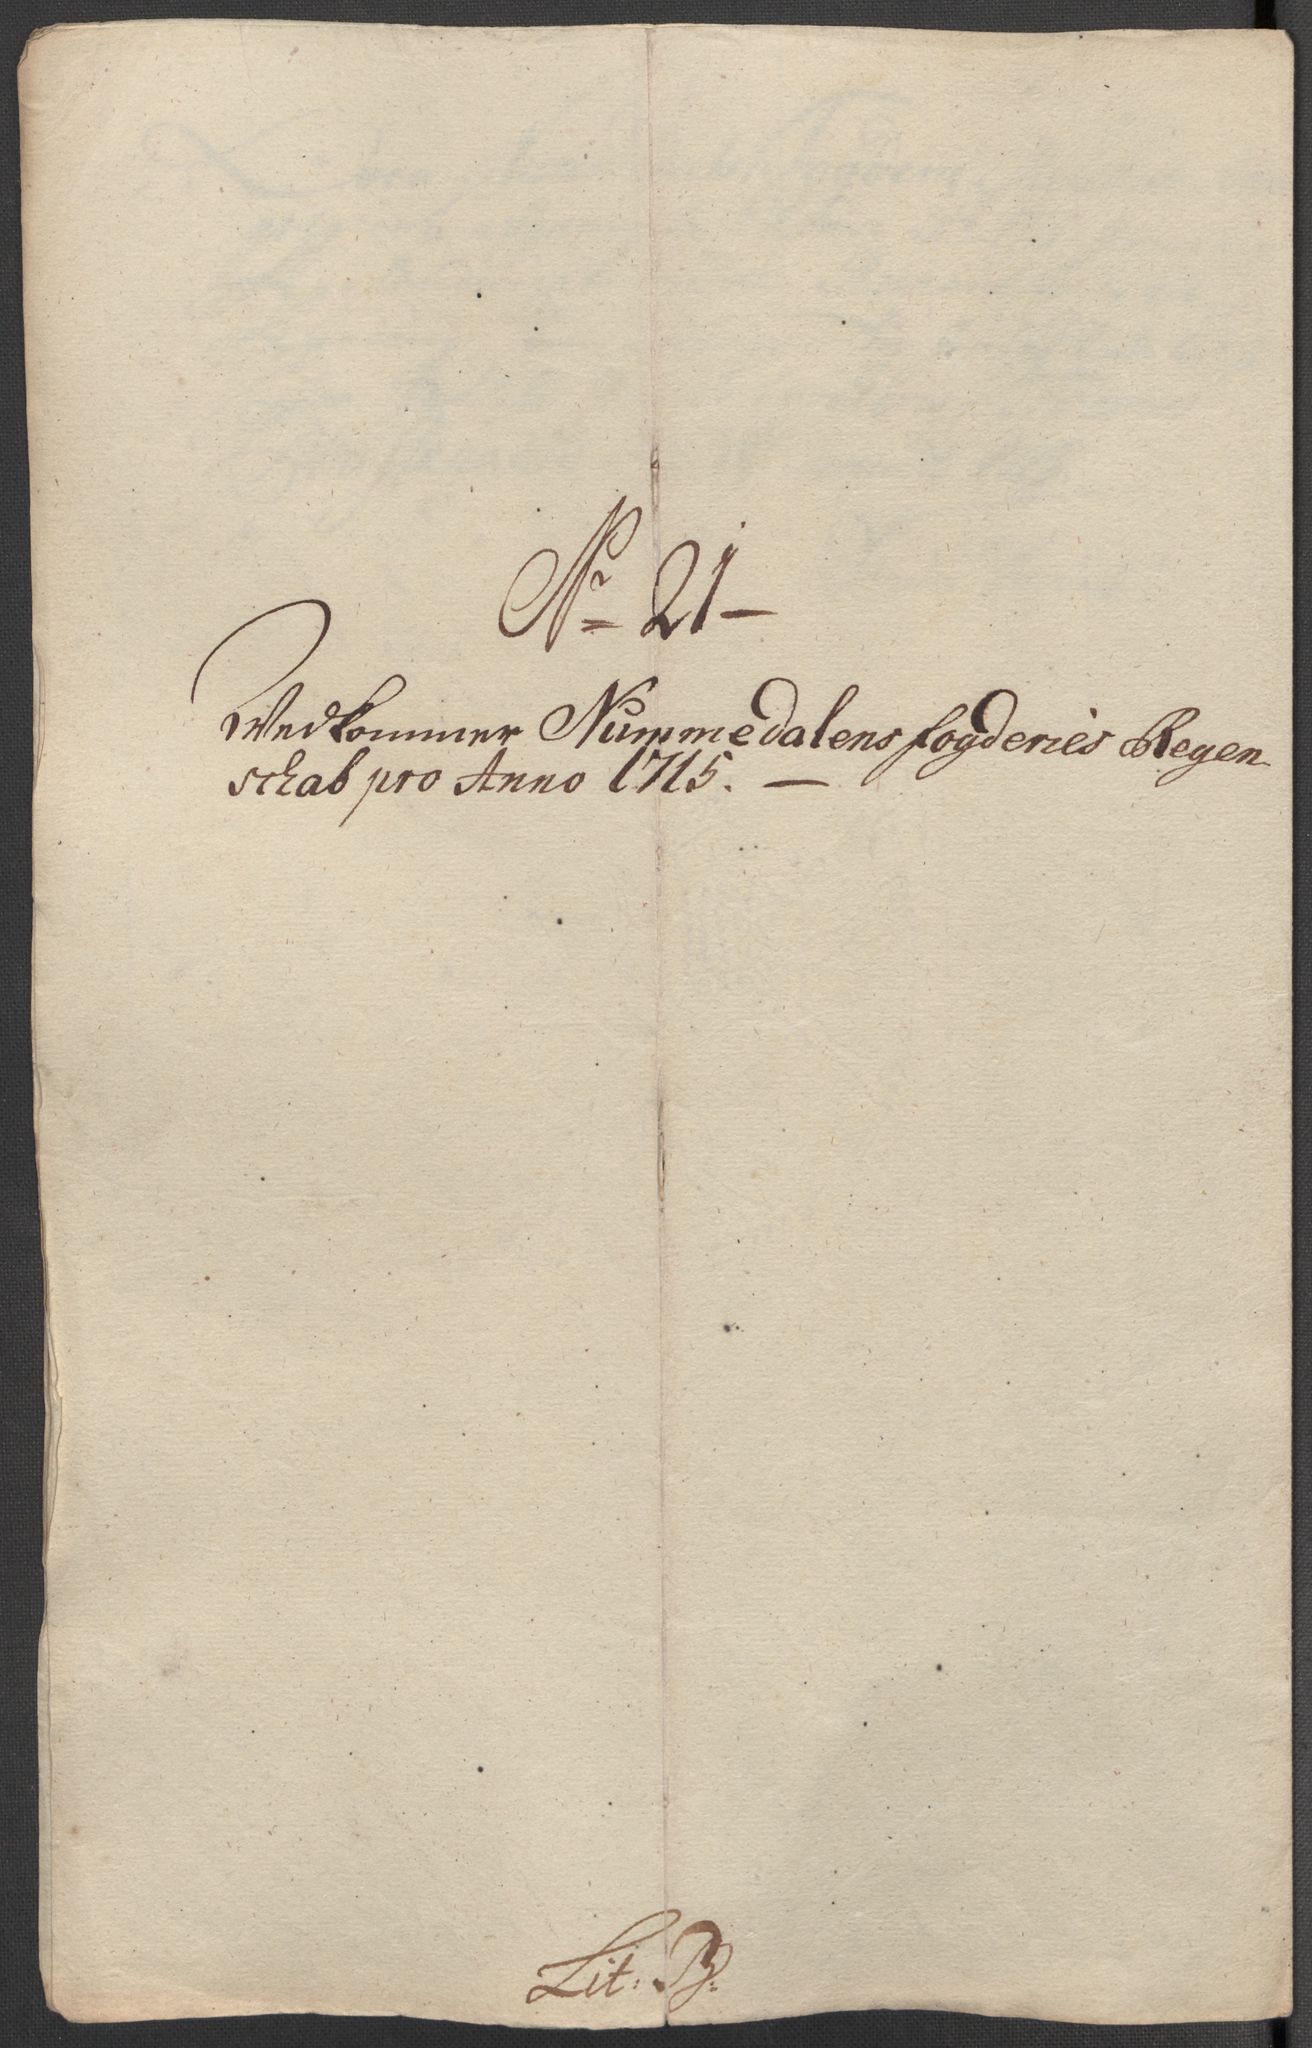 No 21
Wedkommer Nummedalens fogderies Regen
schab pro Anno 1715.
Lit: B: